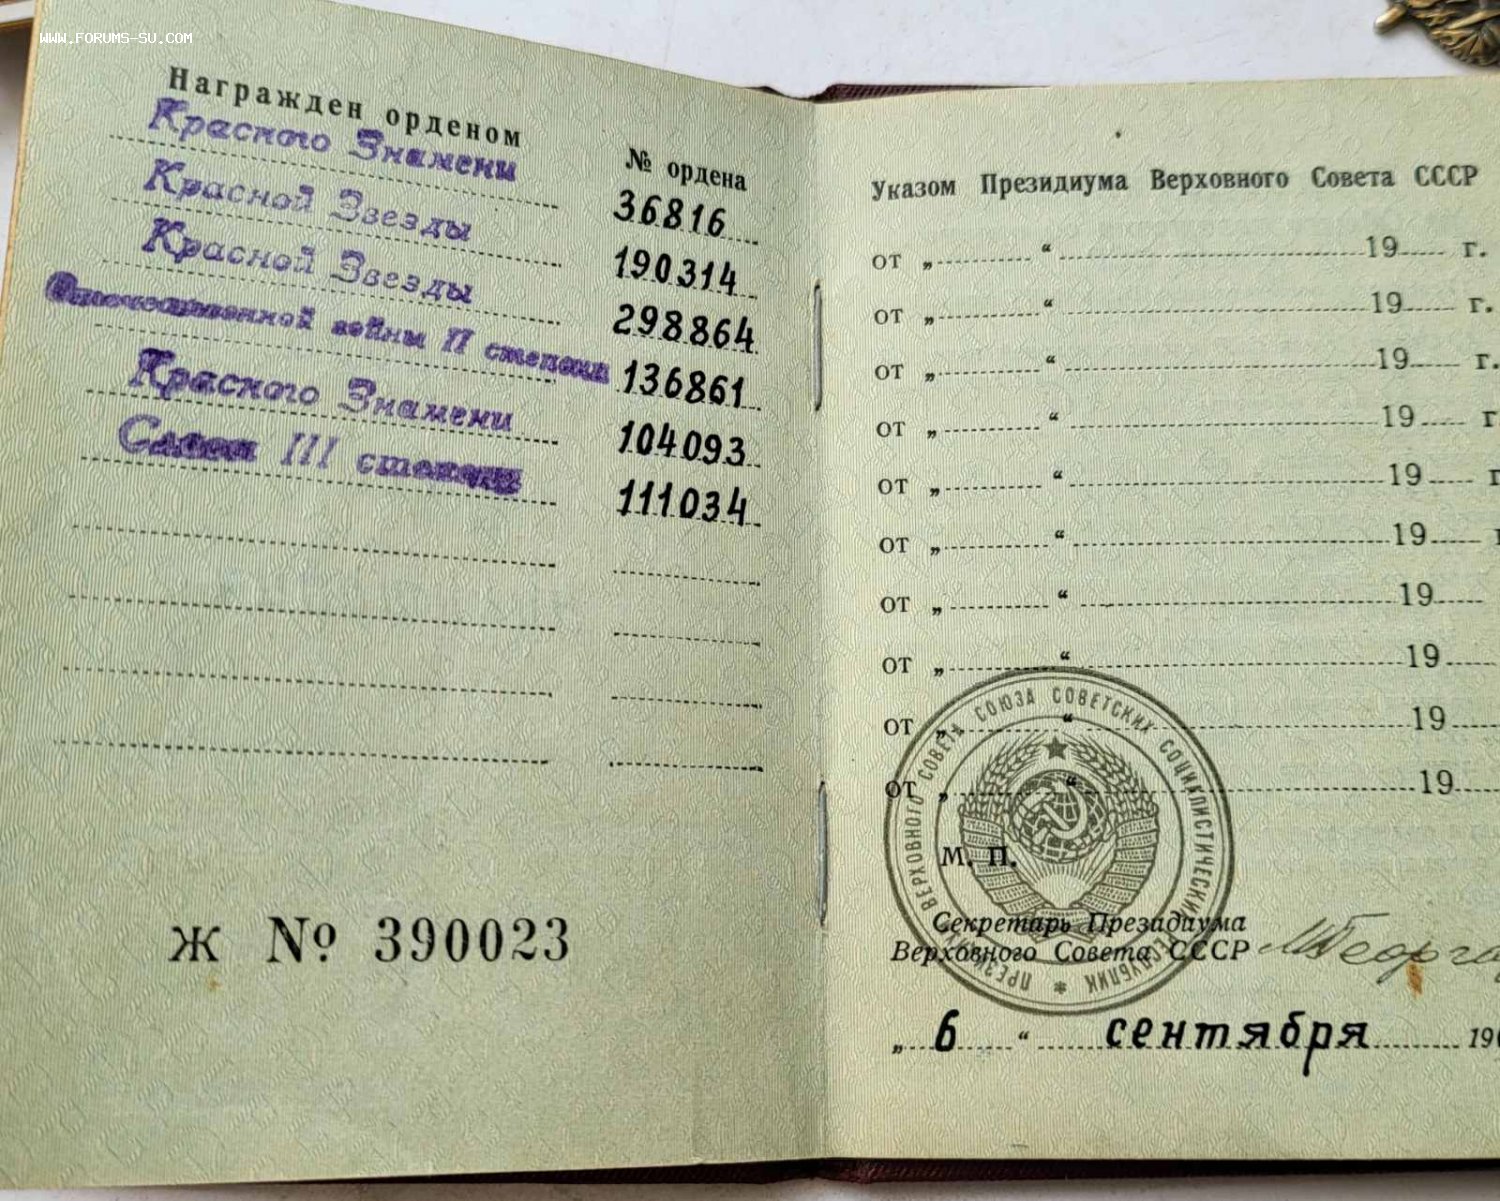 WWW.FORUMS-SU.COM
Награжден орденом
№ ордена
Красного Знамени 36816
Красной Звезды 190314
Красной Звезды 298864
Отечественной войны II степени 136861
Красного Знамени 104093
Славы III степени 111034
Ж № 390023
Указом Президиума Верховного Совета СССР
от „ “ 19 г.
от „ “ 19 г.
от „ “ 19 г.
от „ “ 19 г
от „ “ 19
от „ “ 19
от „ “ 19
от „ “ 19
от „ “ 19
от „ “ 19
ПРЕЗИДИУМ ВЕРХОВНОГО СОВЕТА СОЮЗА СОВЕТСКИХ СОЦИАЛИСТИЧЕСКИХ РЕСПУБЛИК
М. П.
Секретарь Президиума
Верховного Совета СССР
„ 6 “ сентября 19